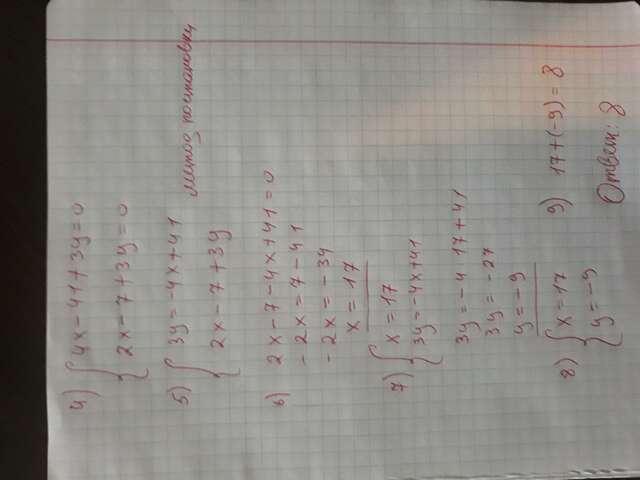 4) { 4x - 41 + 3y = 0
2x - 7 + 3y = 0
5) { 3y = -4x + 41
2x - 7 + 3y
метод постановки
6) 2x - 7 - 4x + 41 = 0
-2x = 7 - 41
-2x = -34
x = 17
7) { x = 17
3y = -4x + 41
3y = -4 17 + 41
3y = -27
y = -9
8) { x = 17
y = -9
9) 17 + (-9) = 8
Ответ: 8